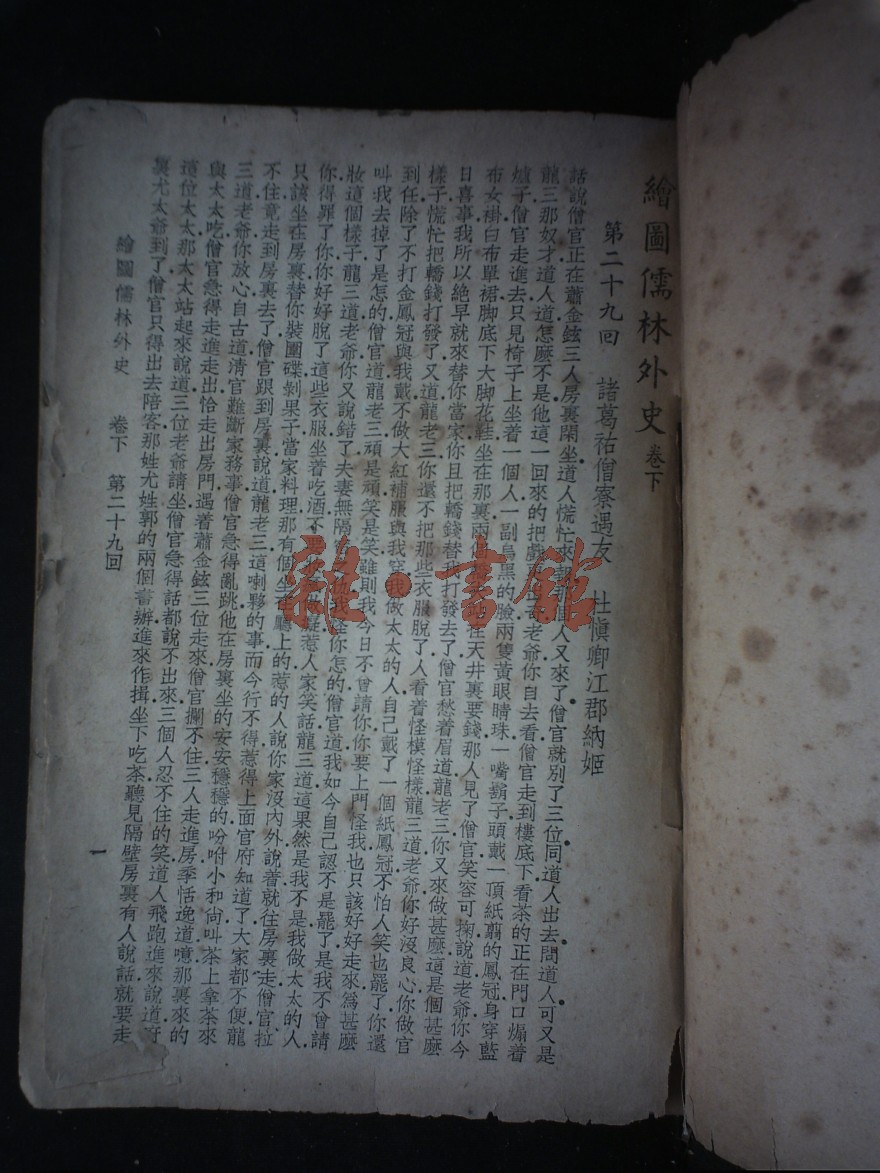 繪圖儒林外史 卷下
第二十九回 諸葛祐僧寮遇友 杜愼卿江郡納姬
話說僧官正在蕭金鉉三人房裏閑坐道人慌忙來報那個人又來了僧官就別了三位同道人出去問道人可又是
龍三那奴才道人道怎麽不是他這一回來的把戲老爺你自去看僧官走到樓底下看茶的正在門口煽着
爐子僧官走進去只見椅子上坐着一個人一副烏黑的臉兩隻黃眼睛珠一嘴鬍子頭戴一頂紙剪的鳳冠身穿藍
布女褂白布單裙脚底下大脚花鞋坐在那裏兩個在天井裏要錢那人見了僧官笑容可掬說道老爺你今
日喜事我所以絶早就來替你當家你且把轎錢替我打發去了僧官愁着眉道龍老三你又來做甚麽這是個甚麽
樣子慌忙把轎錢打發了又道龍老三你還不把那些衣服脫了人看着怪模怪樣龍三道老爺你好沒良心你做官
到任除了不打金鳳冠與我戴不做大紅補服與我穿我做太太的人自己戴了一個紙鳳冠不怕人笑也罷了你還
叫我去掉了是怎的僧官道龍老三頑是頑笑是笑雖則我今日不曾請你你要上門怪我也只該好好走來爲甚麽
妝這個樣子龍三道老爺你又說錯了夫妻無隔我怪你怎的僧官道我如今自己認不是罷了是我不曾請
你得罪了你你好好脫了這些衣服坐着吃酒不要惹人家笑話龍三道這果然是我不是我做太太的人
只該坐在房裏替你裝圍碟剝果子當家料理那有個坐在廳上的惹的人說你家沒內外說着就往房裏走僧官拉
不住竟走到房裏去了僧官跟到房裏說道龍老三這喇夥的事而今行不得惹得上面官府知道了大家都不便龍
三道老爺你放心自古道淸官難斷家務事僧官急得亂跳他在房裏坐的安安穩穩的吩咐小和尙叫茶上拿茶來
與太太吃僧官急得走進走出恰走出房門遇着蕭金鉉三位走來僧官攔不住三人走進房季恬逸道噫那裏來的
這位太太那太太站起來說道三位老爺請坐僧官急得話都說不出來三個人忍不住的笑道人飛跑進來說道府
裏尤太爺到了僧官只得出去陪客那姓尤姓郭的兩個書辦進來作揖坐下吃茶聽見隔壁房裏有人說話就要走
繪圖儒林外史 卷下 第二十九回
一
雜·書館